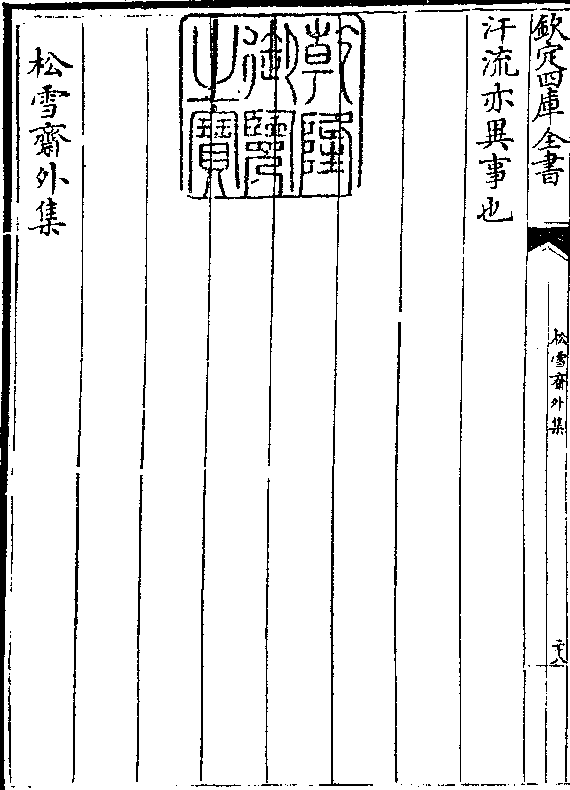 欽定四庫全書
松雪齋外集
二十八
汗流亦異事也
乾隆
御覽
之寶
松雪齋外集